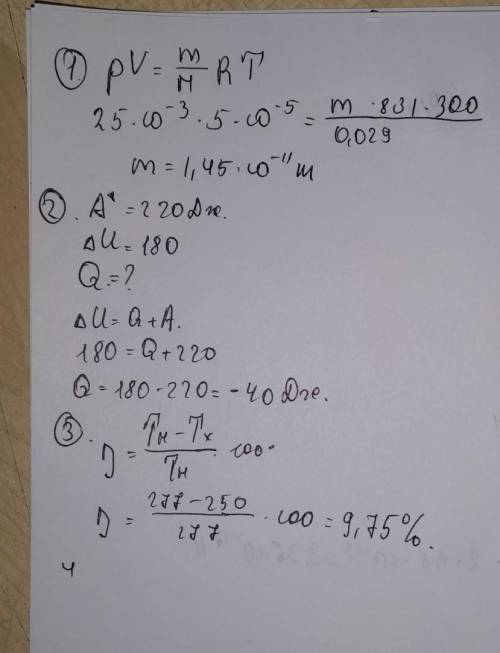 ① pV = m/M RT
25·10⁻³·5·10⁻⁵ = m·831·300 / 0,029
m = 1,45·10⁻¹¹ м
②. A' = 220 Дж.
ΔU = 180
Q = ?
ΔU = Q + A.
180 = Q + 220
Q = 180 - 220 = - 40 Дж.
③.
η = Tн - Tх / Tн · 100
η = 277 - 250 / 277 · 100 = 9,75%.
4